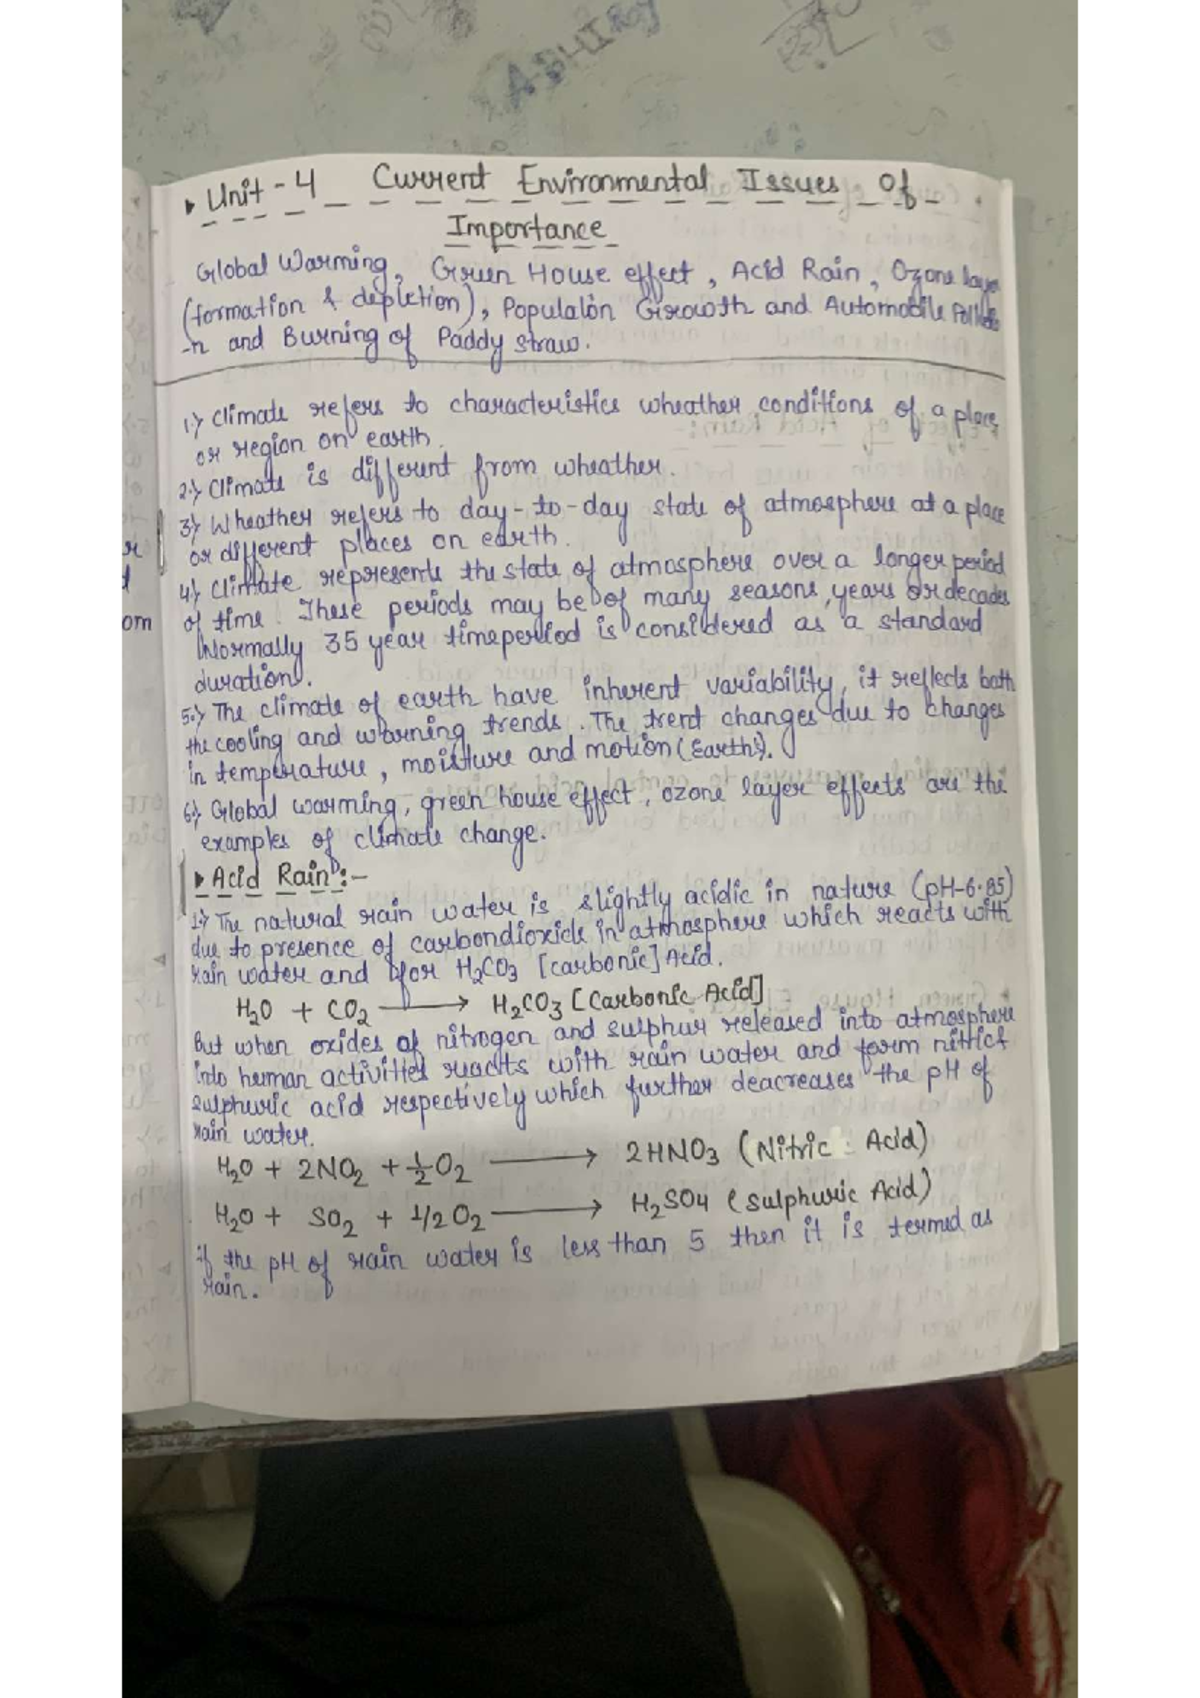 A-BHI Roy
Unit-4 Current Environmental Issues Of
Importance
Global Warming, Green House effect, Acid Rain, Ozone layer
(formation & depletion), Populaion Growoth and Automobile Pollutio
-n and Burning of Paddy straw.
1.) Climate refers to characteristics wheather conditions of a place
or region on earth.
2.) Climate is different from wheather.
3.) Wheather refers to day-to-day state of atmosphere at a place
or different places on earth.
4.) Climate represents the state of atmosphere over a longer period
of time. These periods may be of many seasons, years or decades
Normally 35 year timeperiod is considered as a standard
duration.
5.) The climate of earth have inherent variability, it reflects both
the cooling and warning trends. The trent changes due to changes
in temperature, moisture and motion (Earths).
6.) Global warming, green house effect, ozone layer effects are the
examples of climate change.
Acid Rain:-
1.) The natural rain water is slightly acidic in nature (pH-6.85)
due to presence of carbondioxide in atmosphere which reacts with
rain water and for H2CO3 [carbonic] Acid.
H2O + CO2 → H2CO3 [Carbonic Acid]
But when oxides of nitrogen and sulphur released into atmosphere
into human activities reacts with rain water and form nitrict
sulphuric acid respectively which further deacreases the pH of
rain water.
H2O + 2NO2 + 1/2 O2 → 2HNO3 (Nitric Acid)
H2O + SO2 + 1/2 O2 → H2SO4 (Sulphuric Acid)
if the pH of rain water is less than 5 then it is termed as
rain.
om